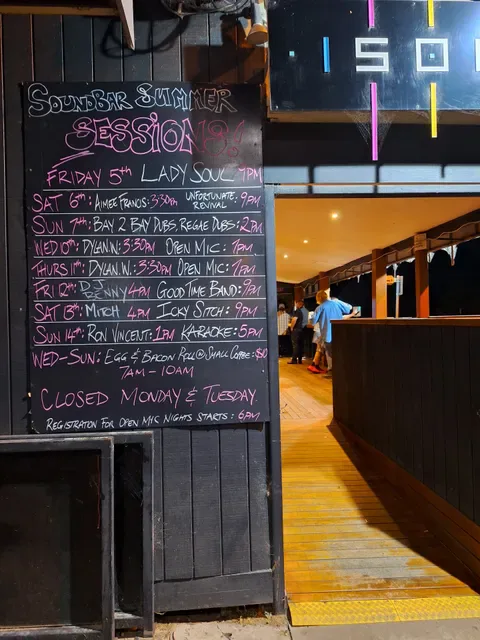 ISO
SOUNDBAR SUMMER
SESSIONS!
FRIDAY 5th LADY SOUL 7PM
SAT 6th: AIMEE FRANCIS: 3:30PM UNFORTUNATE REVIVAL: 9PM
SUN 7th: BAY 2 BAY DUBS, REGAE DUBS: 2PM
WED 10th: DYLAN.W: 3:30PM OPEN MIC: 7PM
THURS 11th: DYLAN.W: 3:30PM OPEN MIC: 7PM
FRI 12th: DJ BENNY 4PM GOOD TIME BAND: 9PM
SAT 13th: MITCH 4PM ICKY SITCH: 9PM
SUN 14th: RON VINCENT: 1PM KARAOKE: 5PM
WED-SUN: EGG & BACON ROLL @ SMALL COFFEE: $10
7AM - 10AM
CLOSED MONDAY & TUESDAY.
REGISTRATION FOR OPEN MIC NIGHTS STARTS: 6PM